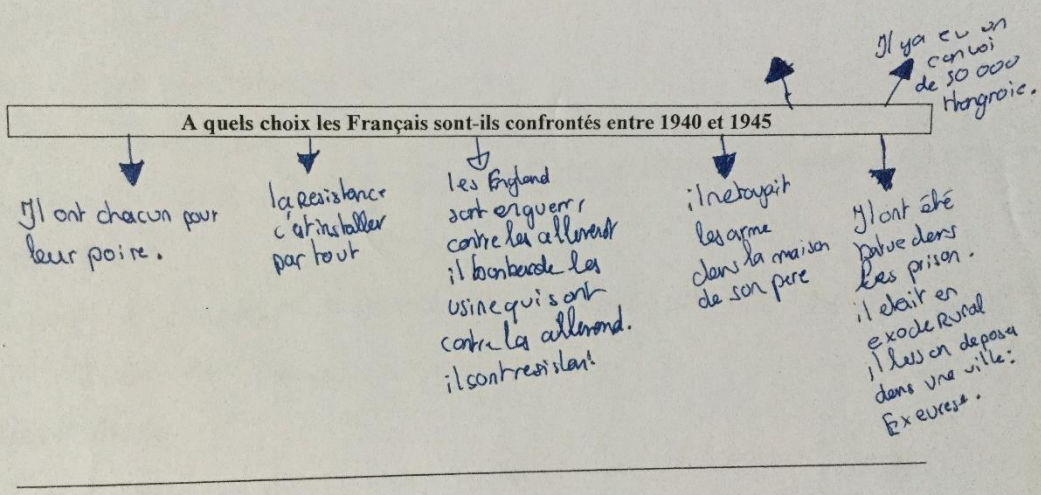 Il ya eu un
convoi
de 50 000
Hongroie.
A quels choix les Français sont-ils confrontés entre 1940 et 1945
Il ont chacun pour
leur poire.
la Resistance
c'est installer
par tout
les England
sont enguerre
contre les allemend
il bombarde les
usine qui sont
contre les allemend.
il sont resistent
il netoyait
les arme
dans la maison
de son pere
Il ont été
dans
les prison.
il etait en
exode Rural
il les on deposer
dans une ville: